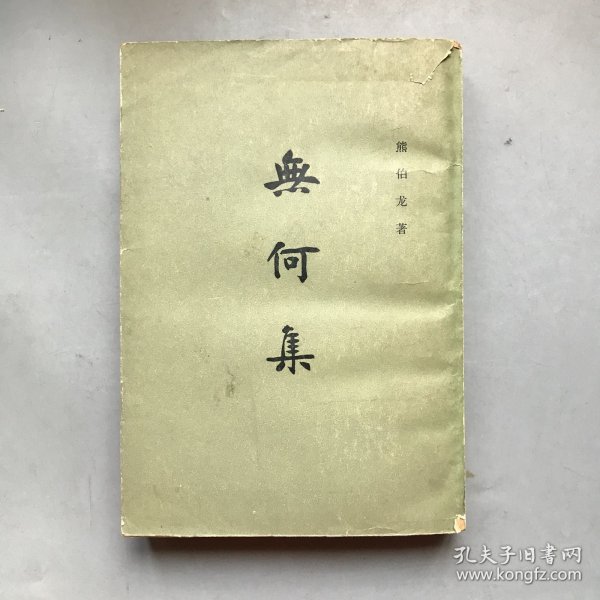 熊伯龙著
無何集
孔夫子旧書网
www.kongfz.com